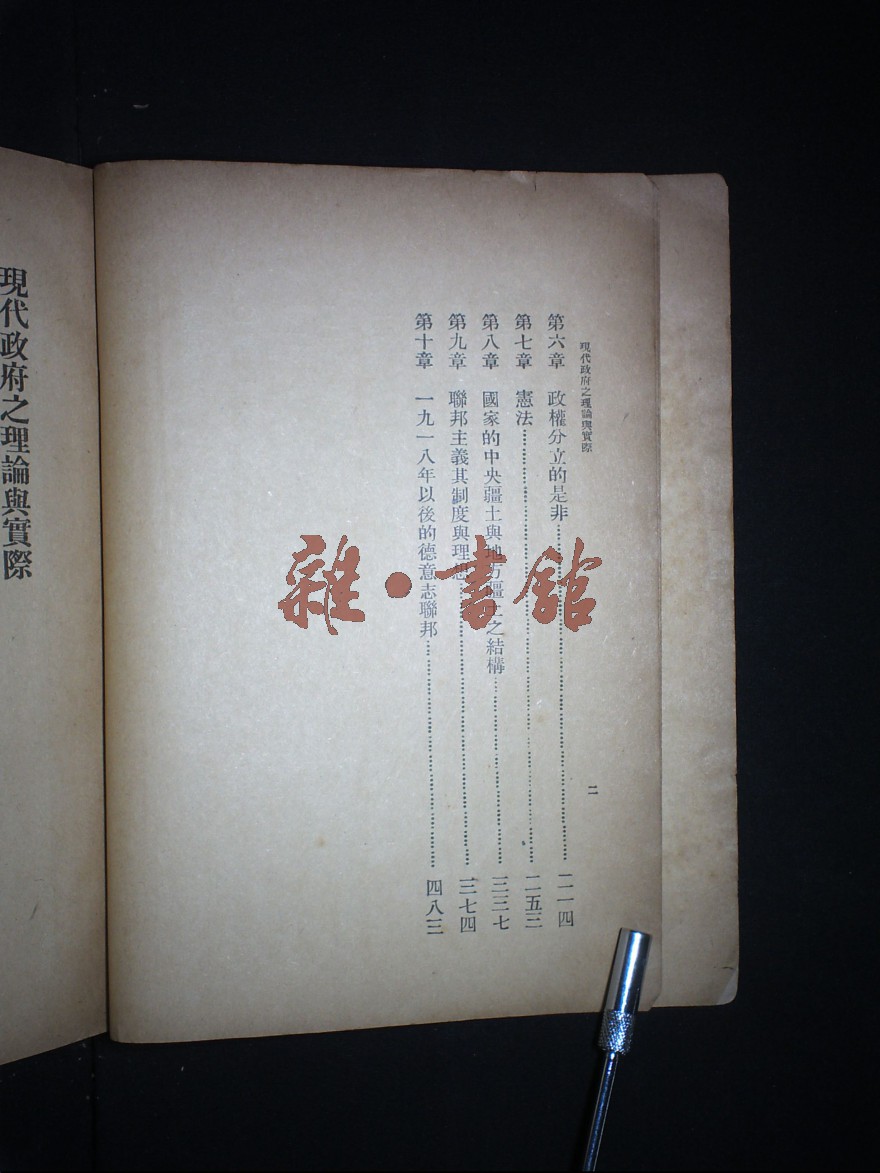 現代政府之理論與實際
二
第六章 政權分立的是非……二一四
第七章 憲法……二五三
第八章 國家的中央疆土與地方疆土之結構……三三七
第九章 聯邦主義其制度與理想……三七四
第十章 一九一八年以後的德意志聯邦……四八三
現代政府之理論與實際
雜·書館